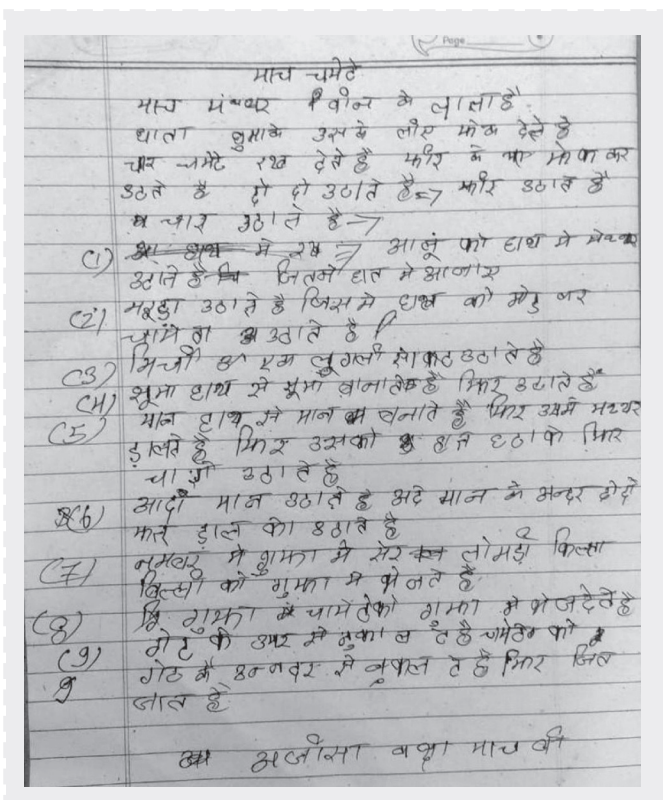 Page
माच चमेटे
माच मंथ्थर वीन के लाता है.
थाता घुमाके उसके लीए फेक देते है
चार चमेटे रख देते है और के फेक कर
उठते है दो दो उठाते है=7 और उठाते है
चार उठाते है-7
(1) मे रख => आलू को हाथ मे
उठाते है जितने हात मे आजाए
(2) उठाते है जिसमे हाथ को मोडु कर
उठाते है
(3) मिर्ची उठाते है
(4) शूमा हाथ से शूमा बानाते है फिर उठाते है
(5) मान हाथ से मान बनाते है फिर उसमे मथ्थर
ड़ालते है फिर उसको हात हठाके फिर
चारो उठाते है
(6) आदी मान उठाते है अदे मान के अन्दर दो दो
करे ड़ाल को उठाते है
(7) नमबर मे गुफा मे सेर लोमड़ी
बिल्ली को गुफा मे भेजते है
(8) गुफा चामेटेको गुफा मे भेजदेते है
(9) गेट के उपर से नुकालते है चमेटे को
9 गेठ के अन्नदर से नुकालते है फिर जित
जाते है
अलीसा कक्षा माच वी